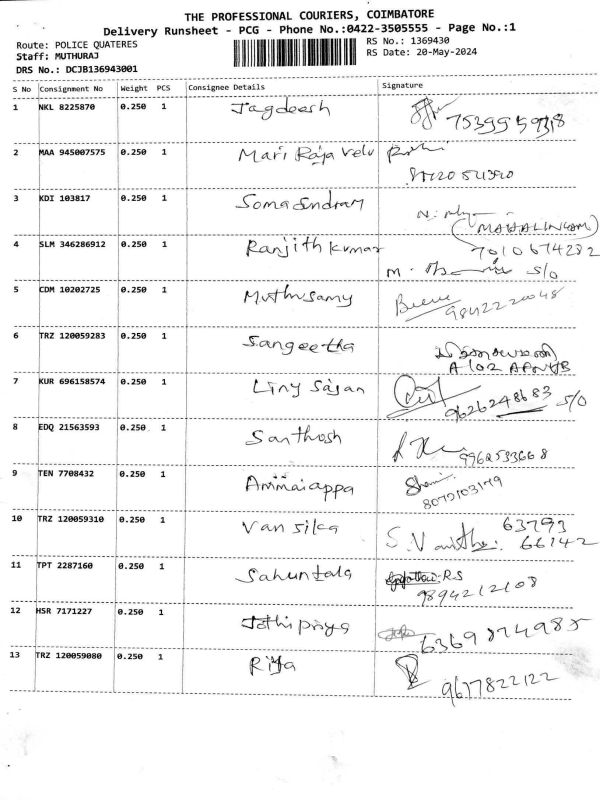 THE PROFESSIONAL COURIERS, COIMBATORE
Delivery Runsheet - PCG - Phone No.:0422-3505555 - Page No.:1
Route: POLICE QUATERES
Staff: MUTHURAJ
DRS No.: DCJB136943001
RS No.: 1369430
RS Date: 20-May-2024
S No Consignment No Weight PCS Consignee Details Signature
1 NKL 8225870 0.250 1 Jagdeesh
7539959318
2 MAA 945007575 0.250 1 Mari Raja velu
3 KDI 103817 0.250 1 Somasundram
(MAHALINGAM)
7010674282
4 SLM 346286912 0.250 1 Ranjith kumar
S/O
5 CDM 10202725 0.250 1 Muthusamy
9842220048
6 TRZ 120059283 0.250 1 Sangeetha
A 102
7 KUR 696158574 0.250 1 Liny Sajan
9626248683 S/O
8 EDQ 21563593 0.250 1 Santhosh
9962533668
9 TEN 7708432 0.250 1 Ammaiappa
8072103179
10 TRZ 120059310 0.250 1 Vansilka
63793
66142
11 TPT 2287160 0.250 1 Sahuntala
R.S
9894212108
12 HSR 7171227 0.250 1 Jothipriya
6369874985
13 TRZ 120059080 0.250 1 Rija
9677822122